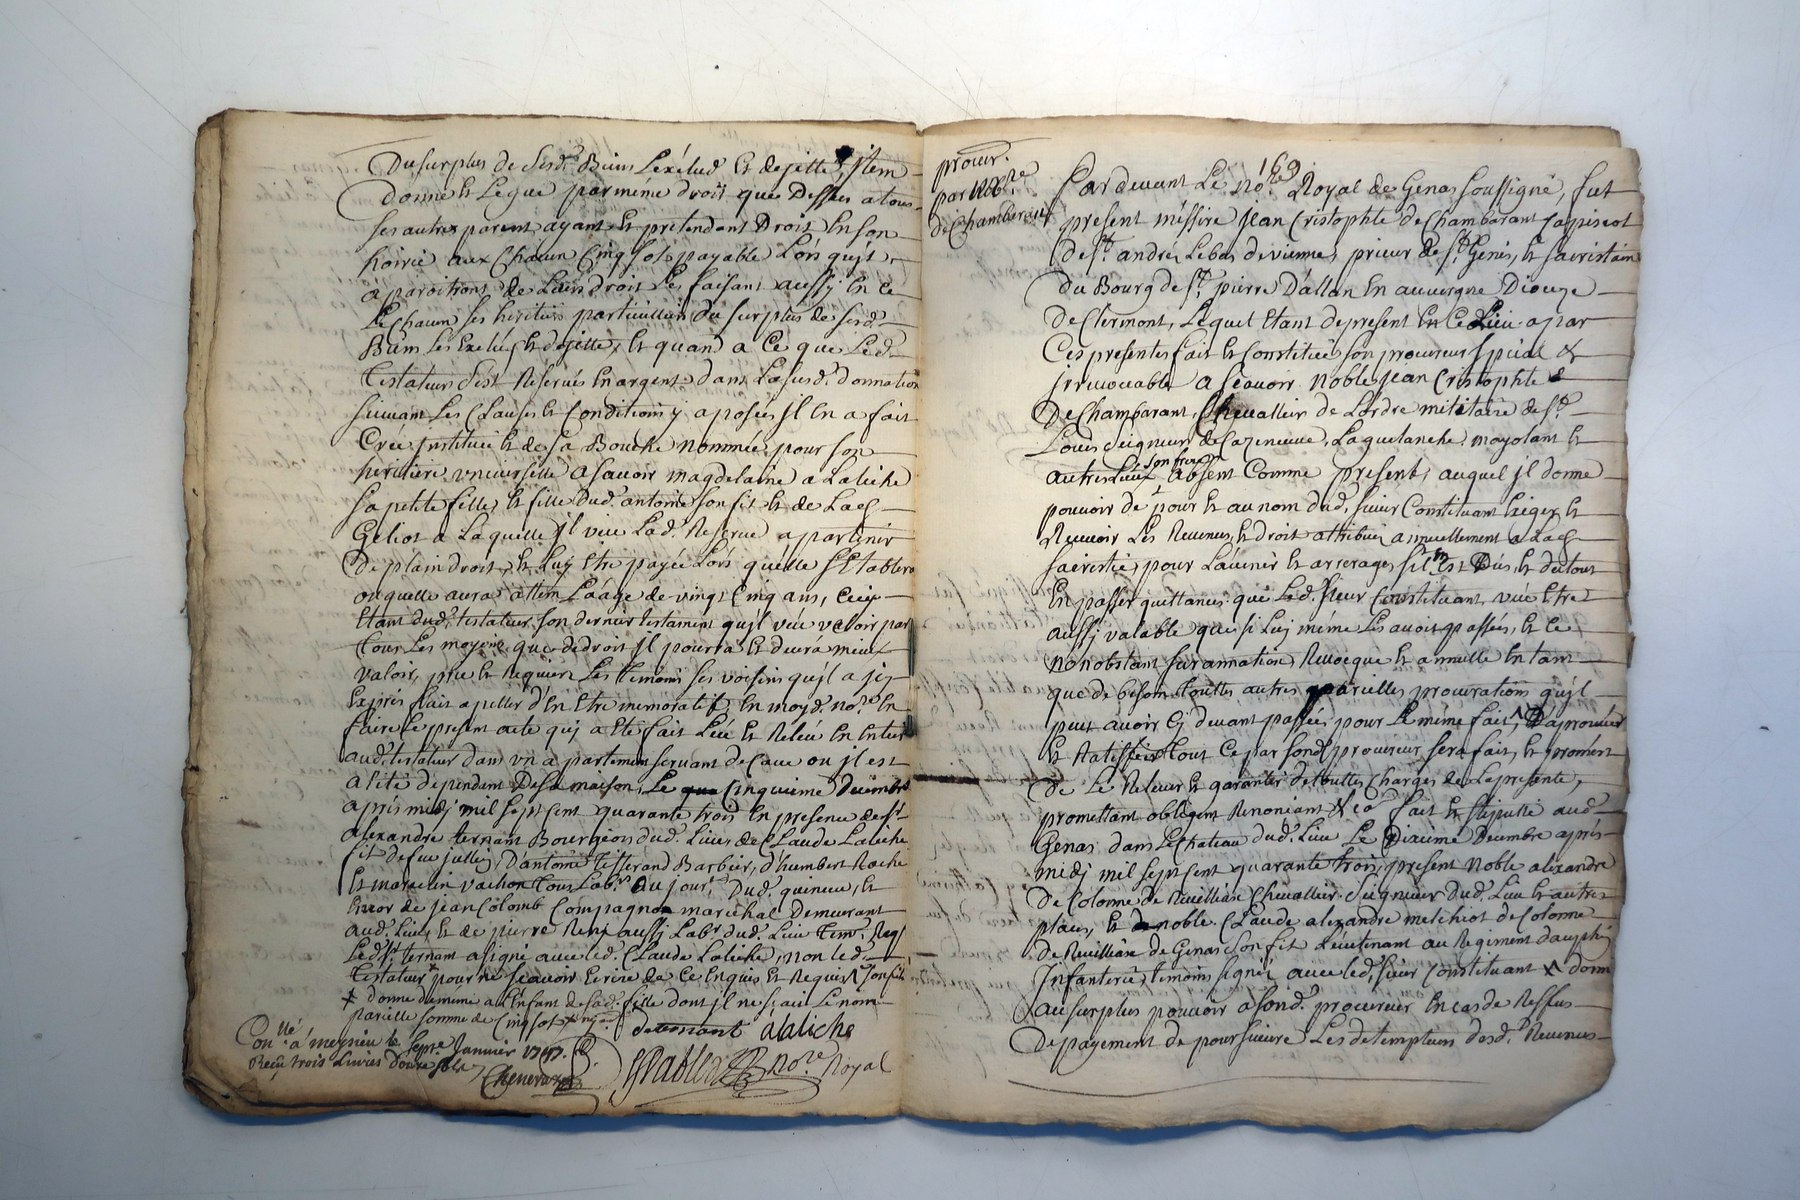 Du surplus de sesd. Biens Lexclud Et dejette, Item
donne Et Legue par meme droit que Dessus a tous
ses autres parent ayant Et pretendant Droit En son
hoirie aux Chacun Cinq sols payable Lors qu'ils
aparoitront de Leurs droit Les faisant aussy En ce
Le Chacun ses heritiers particuliers du surplus de sesd.
Biens Les Exclus Et dejette, Et quand a Ce que Led.
testateur s'est Reservés En argent dans La susd. donnation
suivant Les Clauses Et Conditions y aposées Il En a fait
Créé instituée Et de sa Bouche nommée pour son
heritiere universelle a savoir magdelaine a Laliche
sa petite fille, Et fille dud. antoine son fils Et de Lad.
Geliot a Laquelle Il veu Lad. Reserve apartenir
De plain droit, Et Luy Etre payée Lors quelle s'Etablera
ou quelle aura attein L'aage de vingt Cinq ans, Cecy
Etant dud. testateur son dernier testament qu'il veu valoir par
tous Les moyens que de droit Il pourra Et devra mieux
valoir, prie Et Requiers Les temoins ses voisins qu'il a icy
Exprés fait apeller d'En Etre memoratif, En moyd. no.re En
faire Le present acte qui a Eté fait Leu Et Releu En Entier
aud. testateur dans un apartement servant de Cave ou il est
alité dépendant De sa maison, Le Cinquieme Decembre
apres midi mil sept cent quarante trois En presence de sr.
alexandre ternant Bourgeois dud. Lieu, de Claude Laliche
fils de feu jullien, D'antoine tisserand Barbier, d'humbert Roche
Et marcelin vachon tous Lab.rs du jour. Dud. geneue, Et
Encor de jean Colomb Compagnon marechal Demeurant
aud. Lieu, Et de pierre René aussy Lab.r dud. Lieu tem. Req.
Led. sr. ternant a signé avec led. Claude Laliche, non led.
Testateur pour ne sçavoir Ecrire de ce Enquis Et Requis
+ donne de meme a l'Enfant de sad. fille dont il ne sçait Le nom
pareille somme de Cinq sols
deternant alaliche
Con.llé à meyzieu le sept.e Janvier 1747.
Reçu trois Livres douze sols
no.re Royal
procur.
par Nob.re
de Chambarant
169
Pardevant Le No.re Royal de Genas soussigné, fut
present méssire Jean Cristophle de Chambarant Capiscol
de st. andré Lebas de vienne, prieur de st. Genis, Et sacristain
du Bourg de st. pierre D'allan En auvergne Dioceze
De Clermont, Lequel Etant de present En Ce Lieu a par
Ces presentes fait Et Constitué son procureur spécial &
jrrevocable a sçavoir Noble Jean Cristophle
De Chambarant, Chevallier de L'ordre militaire de st.
Louis seigneur de Cazeneuve, Laquelanche mayolant Et
autres Lieux son frere absent Comme present, auquel il donne
pouvoir de pour Et au nom dud. sieur Constituant Exiger Et
Recevoir Les Revenus, Et droit attribués annuellement a Lad.
sacristie, pour L'avenir Et arrerages s'il En Est Dus, Et du tout
En passer quittances que Led. sieur Constituant veut Etre
aussi valable que si Luy même Les avoit passées, Et ce
nonobstant surannation, Revoque Et annulle En tant
que de besoin toutes autres pareilles procurations qu'il
peut avoir Cy devant passées pour Le même fait, D'aprouver
Et Ratiffier tout Ce par sond. procureur sera fait, Et promèt
De Le Relever Et garantir de touttes Charges de La presente,
promettant obligent Renonciant &ca fait Et stipullé aud.
Genas dans Le Chateau dud. Lieu Le Dixième Decembre aprés
midi mil sept cent quarante trois, present Noble alexandre
De Colonne de Reuilliasc Chevallier Seigneur dud. Lieu Et autres
places, Et noble Claude alexandre melchiot de Colonne
de Reuilliasc de Genas son fils Lieutenant au Regiment dauphin
Infanterie, temoins signés avec led. sieur Constituant + donne
au surplus pouvoir a sond. procureur En cas de Reffus
de payement de poursuivre Les detempteurs desd. Revenus